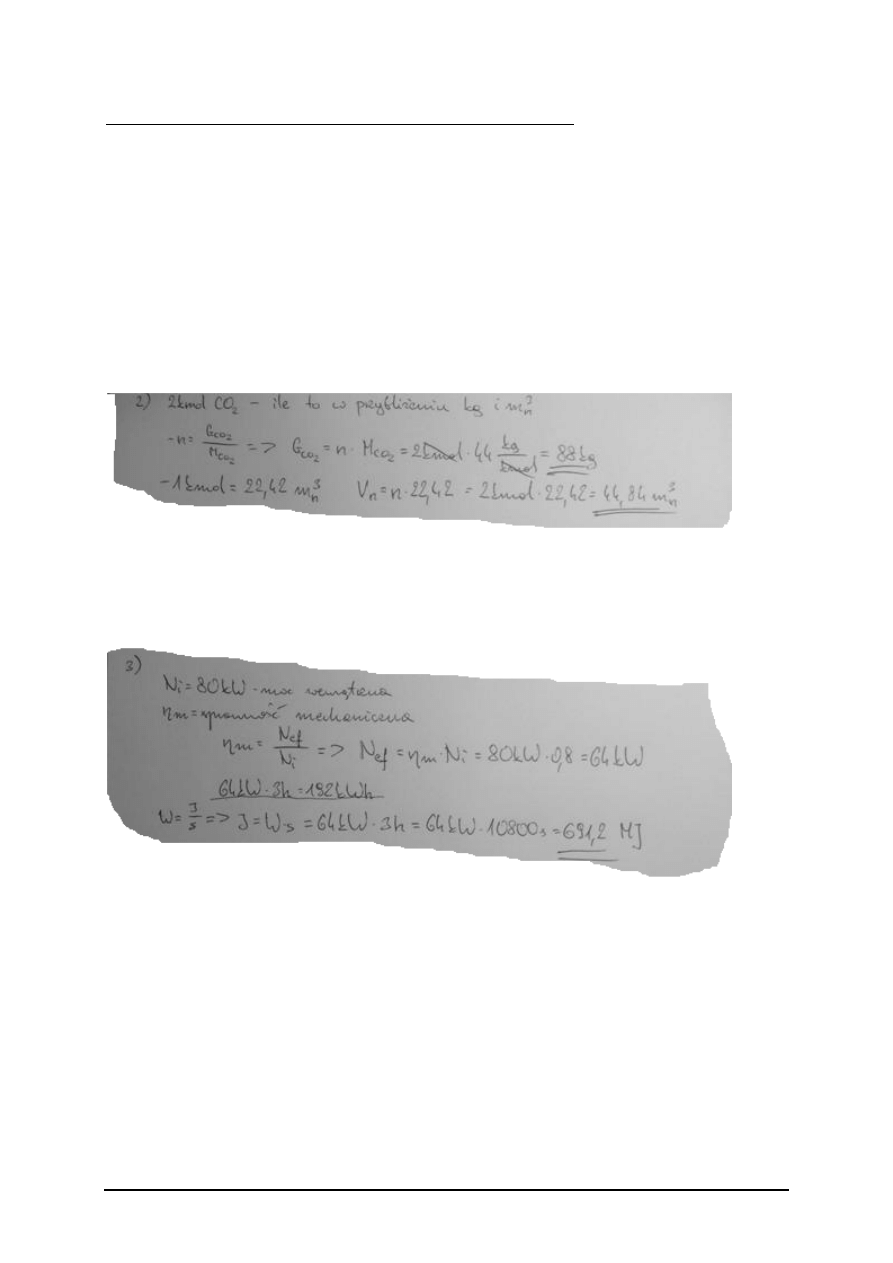 2) 2kmol CO₂ – ile to w przybliżeniu kg i mₙ³
-n = G_CO₂ / M_CO₂ => G_CO₂ = n · M_CO₂ = 2kmol · 44 kg/kmol = 88kg
-1kmol = 22,42 mₙ³ Vₙ = n · 22,42 = 2kmol · 22,42 = 44,84 mₙ³
3)
Ni = 80kW - moc wewnętrzna
ηm = sprawność mechaniczna
ηm = Nef / Ni => Nef = ηm · Ni = 80kW · 0,8 = 64kW
64kW · 3h = 192kWh
W = J/s => J = W·s = 64kW · 3h = 64kW · 10800s = 691,2 MJ